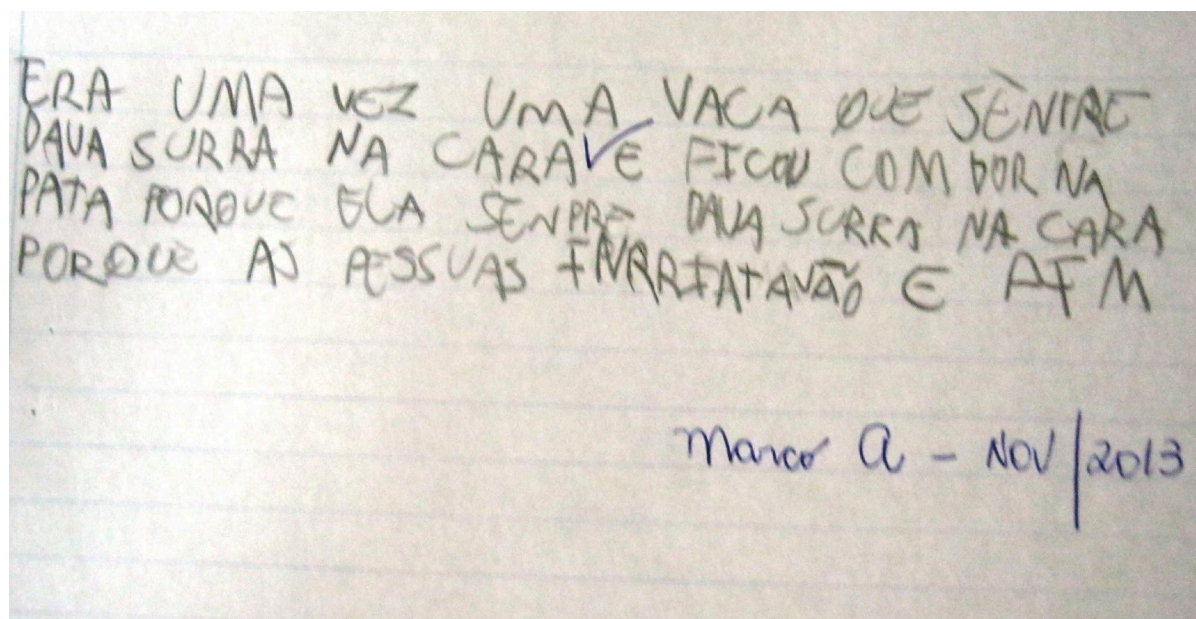 ERA UMA VEZ UMA VACA QUE SENPRE
DAVA SURRA NA CARA E FICOU COM DOR NA
PATA PORQUE ELA SENPRE DAVA SURRA NA CARA
PORQUE AS PESSUAS INRRIATAVÃO E FIM
Marco A - NOV/2013